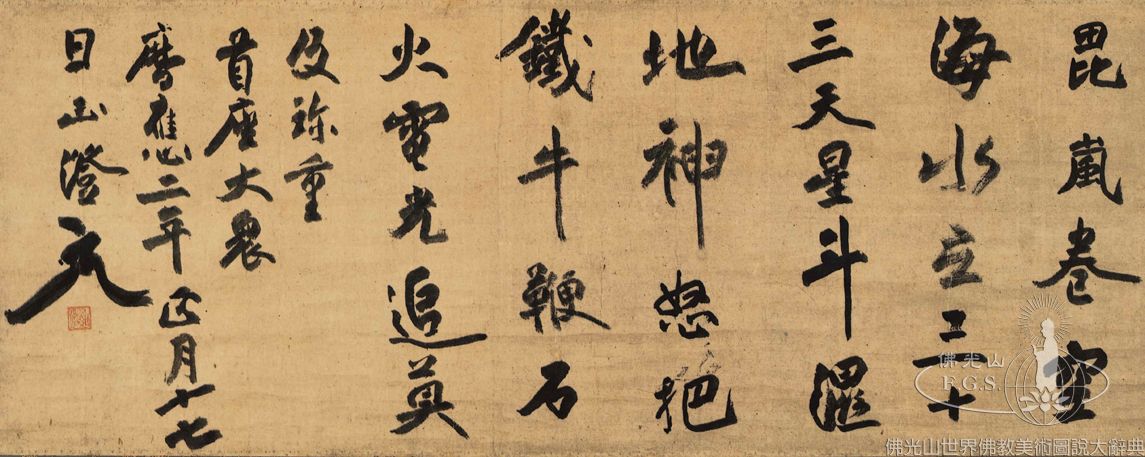 毘嵐卷空
海水立三十
三天星斗濕
地神怒把
鐵牛鞭石
火電光追莫
及珍重
首座大衆
曆應二年正月十七
日正澄
佛光山
F.G.S.
佛光山世界佛教美術圖說大辭典